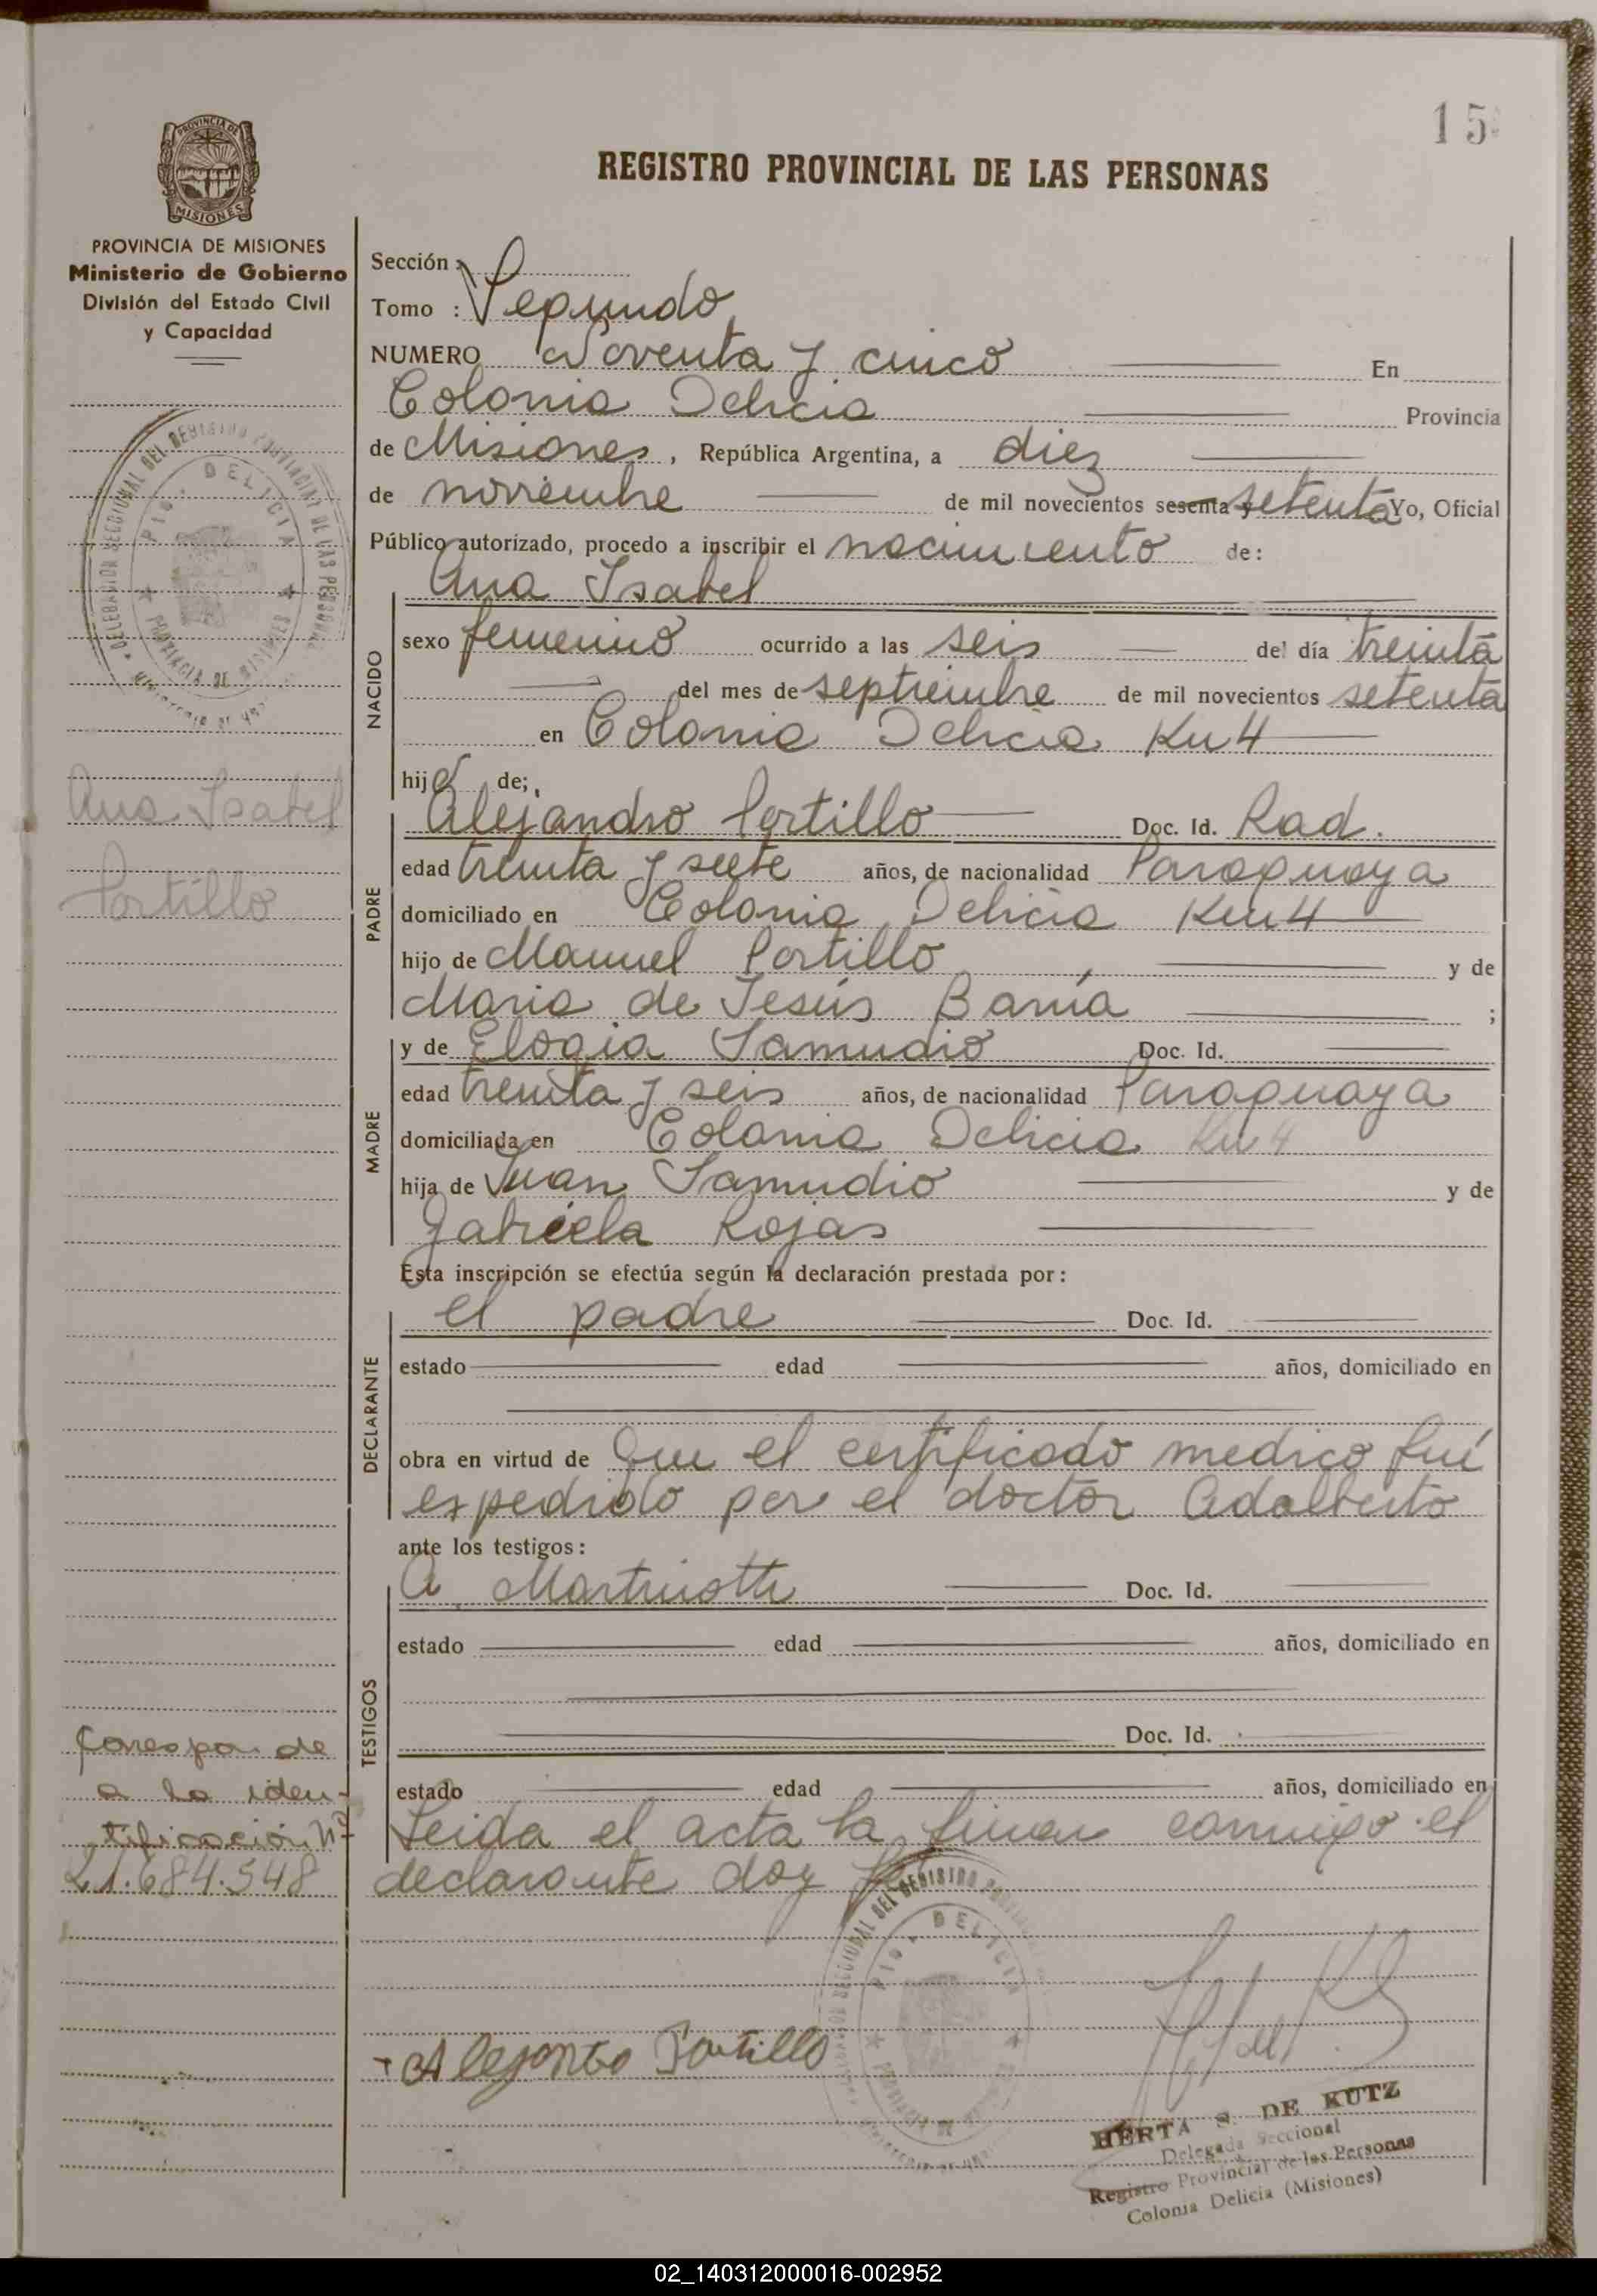 15
REGISTRO PROVINCIAL DE LAS PERSONAS
PROVINCIA DE
MISIONES
PROVINCIA DE MISIONES
Ministerio de Gobierno
División del Estado Civil
y Capacidad
Sección :
Tomo : Segundo
NUMERO Noventa y cinco En
Colonia Delicia Provincia
de Misiones, República Argentina, a diez
de noviembre de mil novecientos sesenta y setenta Yo, Oficial
Público autorizado, procedo a inscribir el nacimiento de:
Ana Isabel
NACIDO
sexo femenino ocurrido a las seis del día treinta
del mes de septiembre de mil novecientos setenta
en Colonia Delicia Km 4
hija de;
Ana Isabel
Portillo
PADRE
Alejandro Portillo Doc. Id. Rad.
edad treinta y siete años, de nacionalidad Paraguaya
domiciliado en Colonia Delicia Km 4
hijo de Manuel Portillo y de
Maria de Jesús ;
MADRE
y de Elogia Samudio Doc. Id.
edad treinta y seis años, de nacionalidad Paraguaya
domiciliada en Colonia Delicia Km 4
hija de Juan Samudio y de
Gabriela Rojas
Esta inscripción se efectúa según la declaración prestada por:
DECLARANTE
el padre Doc. Id.
estado edad años, domiciliado en
obra en virtud de Que el certificado medico fué
expedido por el doctor Adalberto
ante los testigos:
TESTIGOS
A. Martinotti Doc. Id.
estado edad años, domiciliado en
Doc. Id.
estado edad años, domiciliado en
Leida el acta la firman conmigo el
declarante doy fe
Corespon de
a la iden-
tificación Nº
21.684.548
DELEGACION SECCIONAL DEL REGISTRO PROVINCIAL DE LAS PERSONAS
DELICIA
PROVINCIA DE MISIONES
Alejandro Portillo
HERTA S. DE KUTZ
Delegada Seccional
Registro Provincial de las Personas
Colonia Delicia (Misiones)
02_140312000016-002952